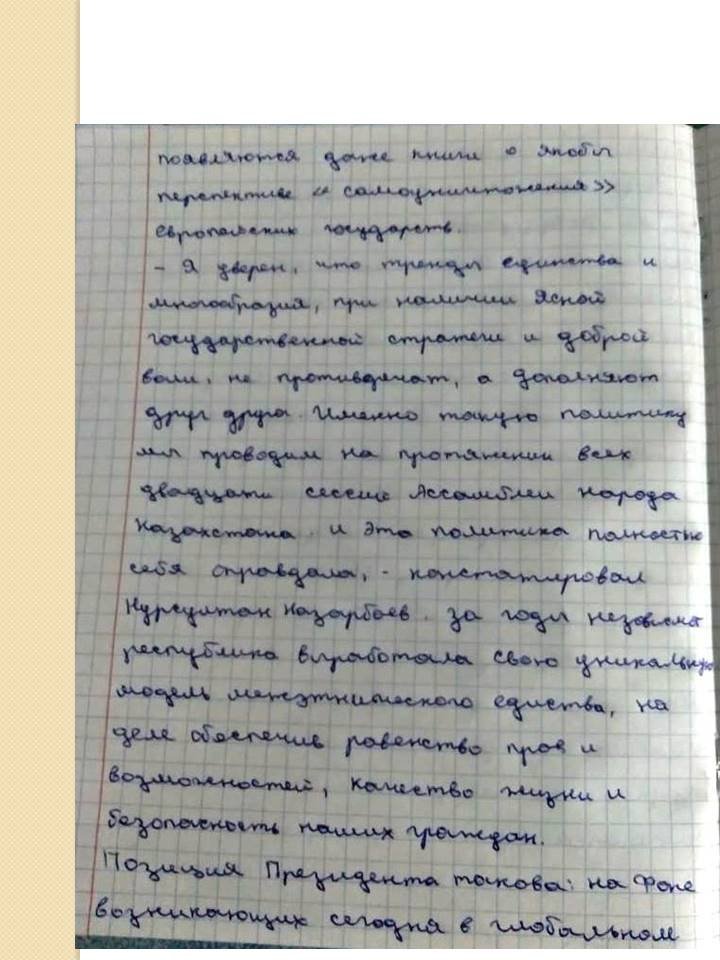 появляются даже книги о якобы
перспективе « самоуничтожения»
европейских государств.
- Я уверен, что тренды единства и
многообразия, при наличии ясной
государственной стратегии и доброй
воли, не противоречат, а дополняют
друг друга. Именно такую политику
мы проводим на протяжении всех
двадцати сессий Ассамблеи народа
Казахстана и эта политика полностью
себя оправдала, - констатировал
Нурсултан Назарбаев. За годы независмст
республика выработала свою уникальную
модель межэтнического едиства, на
деле обеспечив равенство прав и
возможностей, качество жизни и
безопасность наших граждан.
Позиция Президента такова: на фоне
возникающих сегодня в глобальном